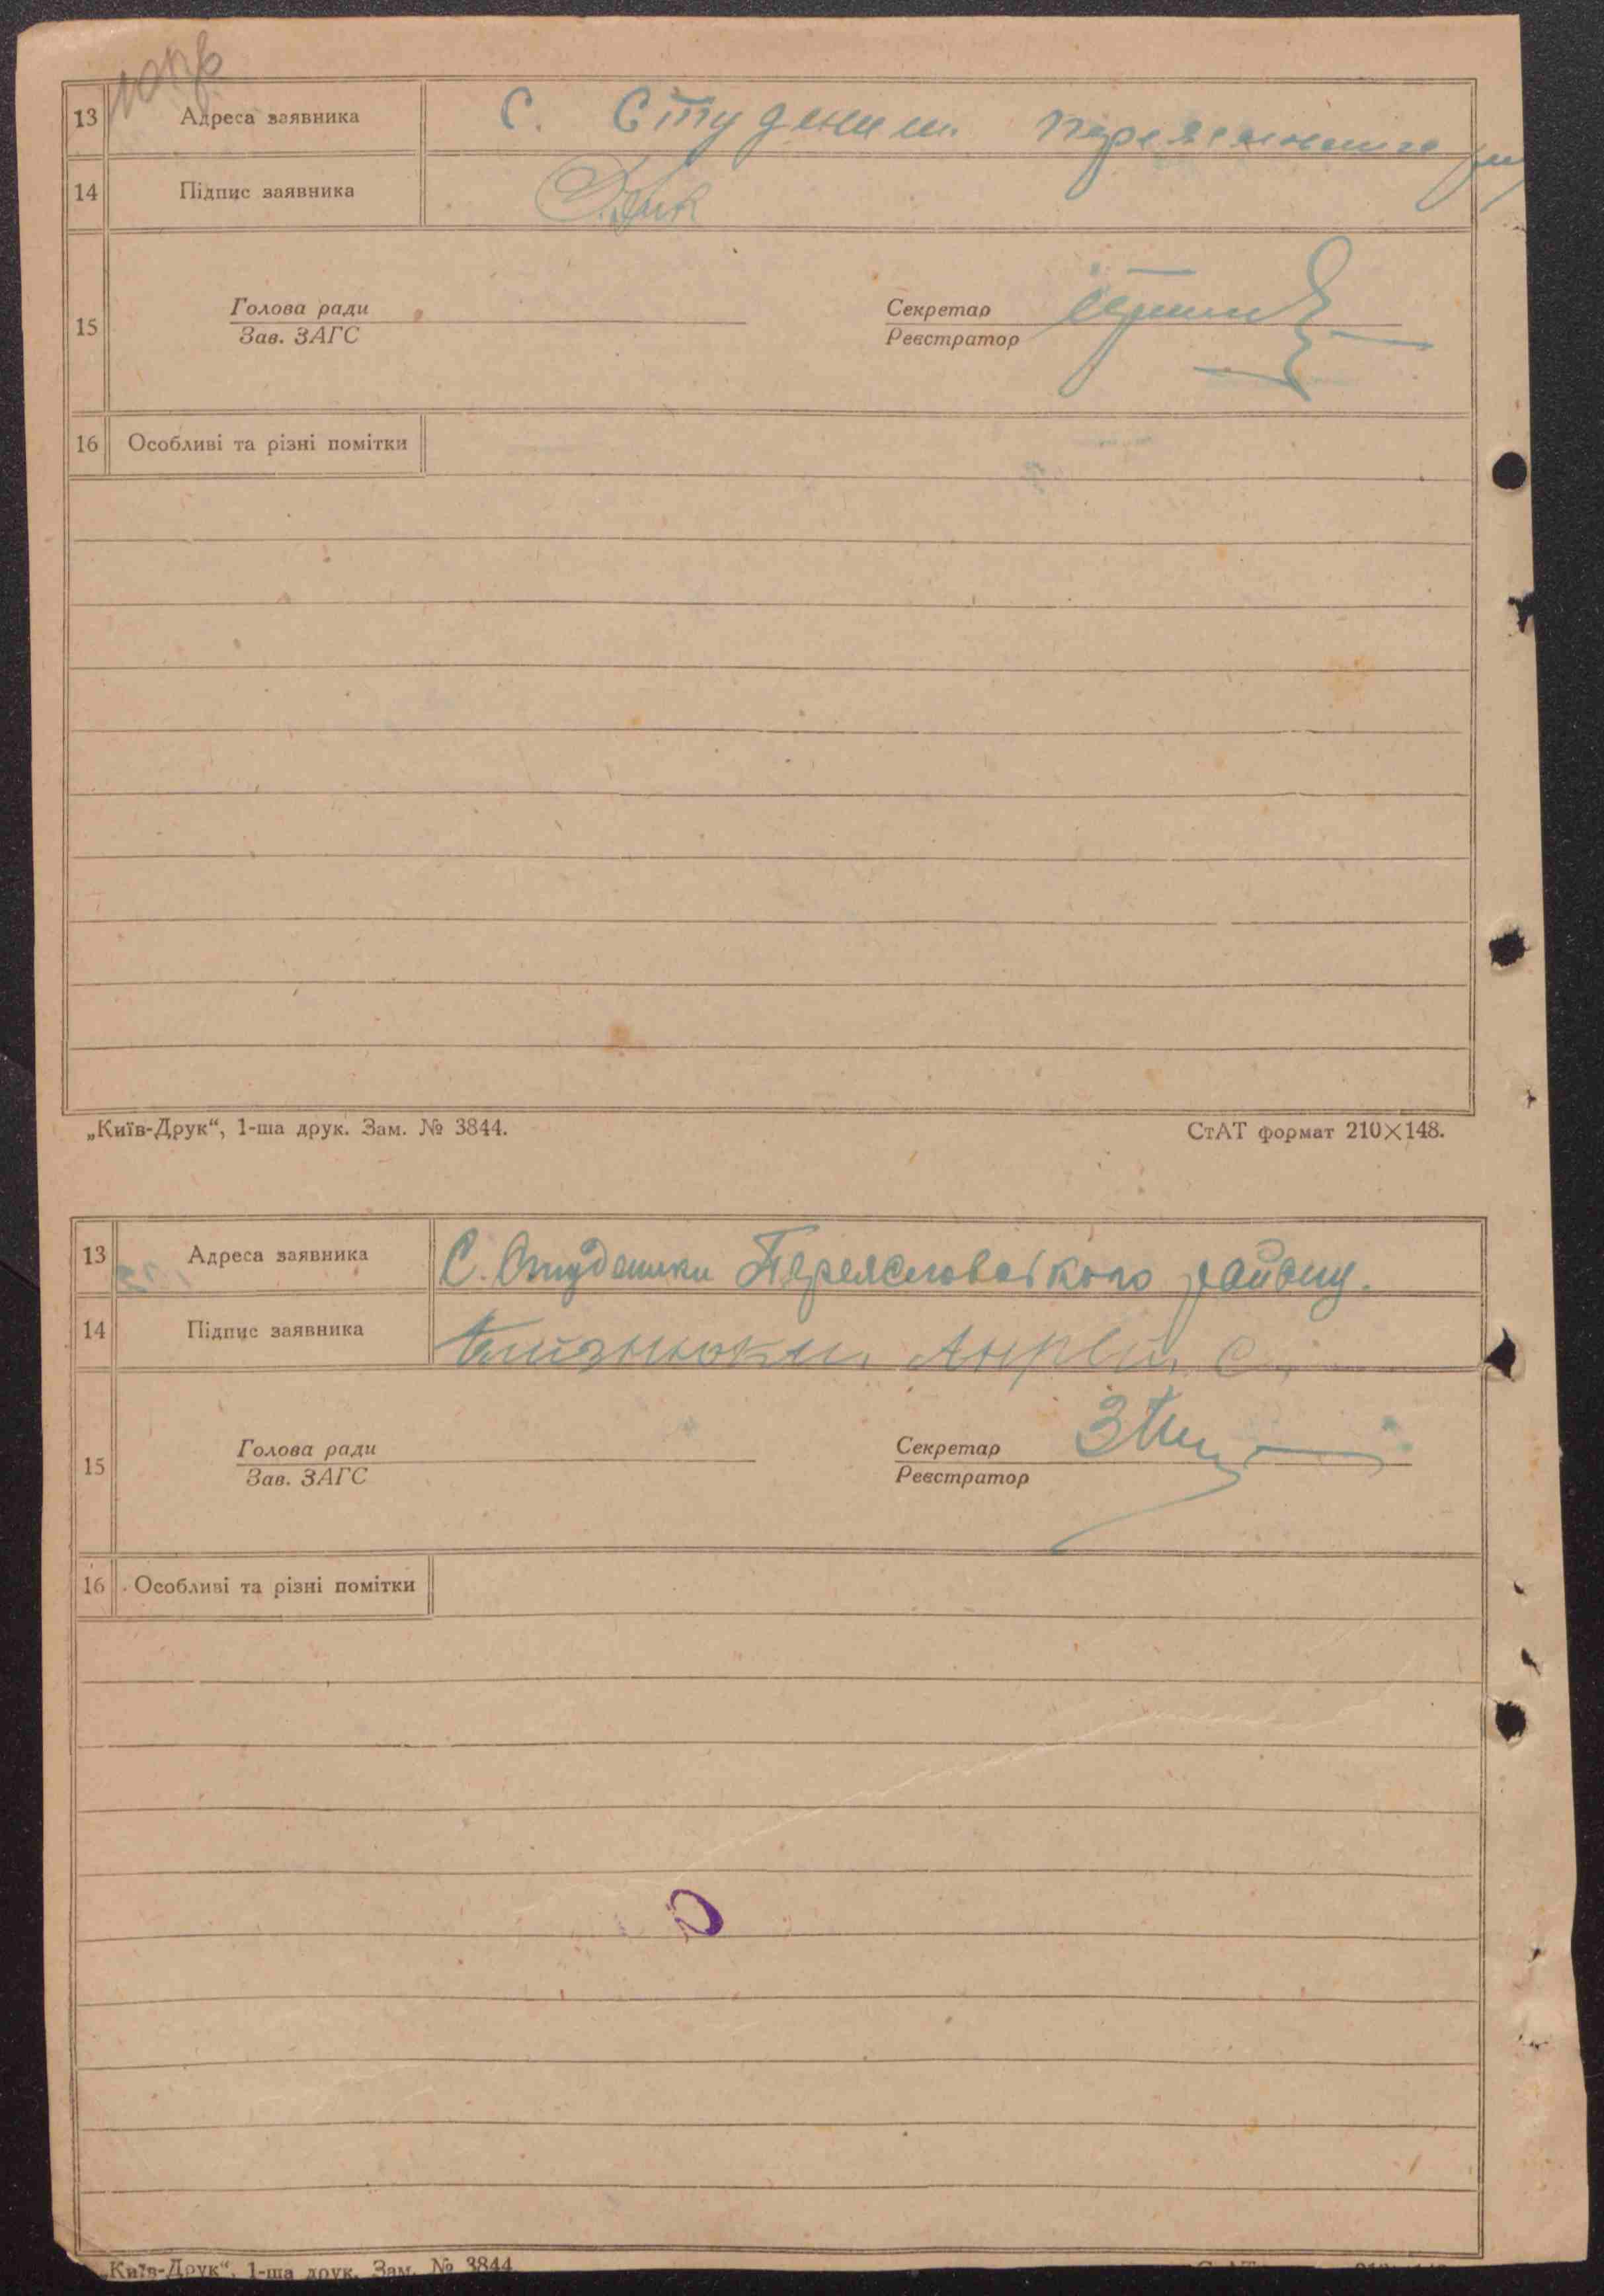 13 Адреса заявника С. Студеники
14 Підпис заявника
Голова ради Секретар
15
Зав. ЗАГС Реєстратор
16 Особливі та різні помітки
„Київ-Друк“, 1-ша друк. Зам. № 3844. СтАТ формат 210×148.
13 Адреса заявника С. Студеники Переяславського району.
14 Підпис заявника
Голова ради Секретар
15
Зав. ЗАГС Реєстратор
16 Особливі та різні помітки
„Київ-Друк“, 1-ша друк. Зам. № 3844.